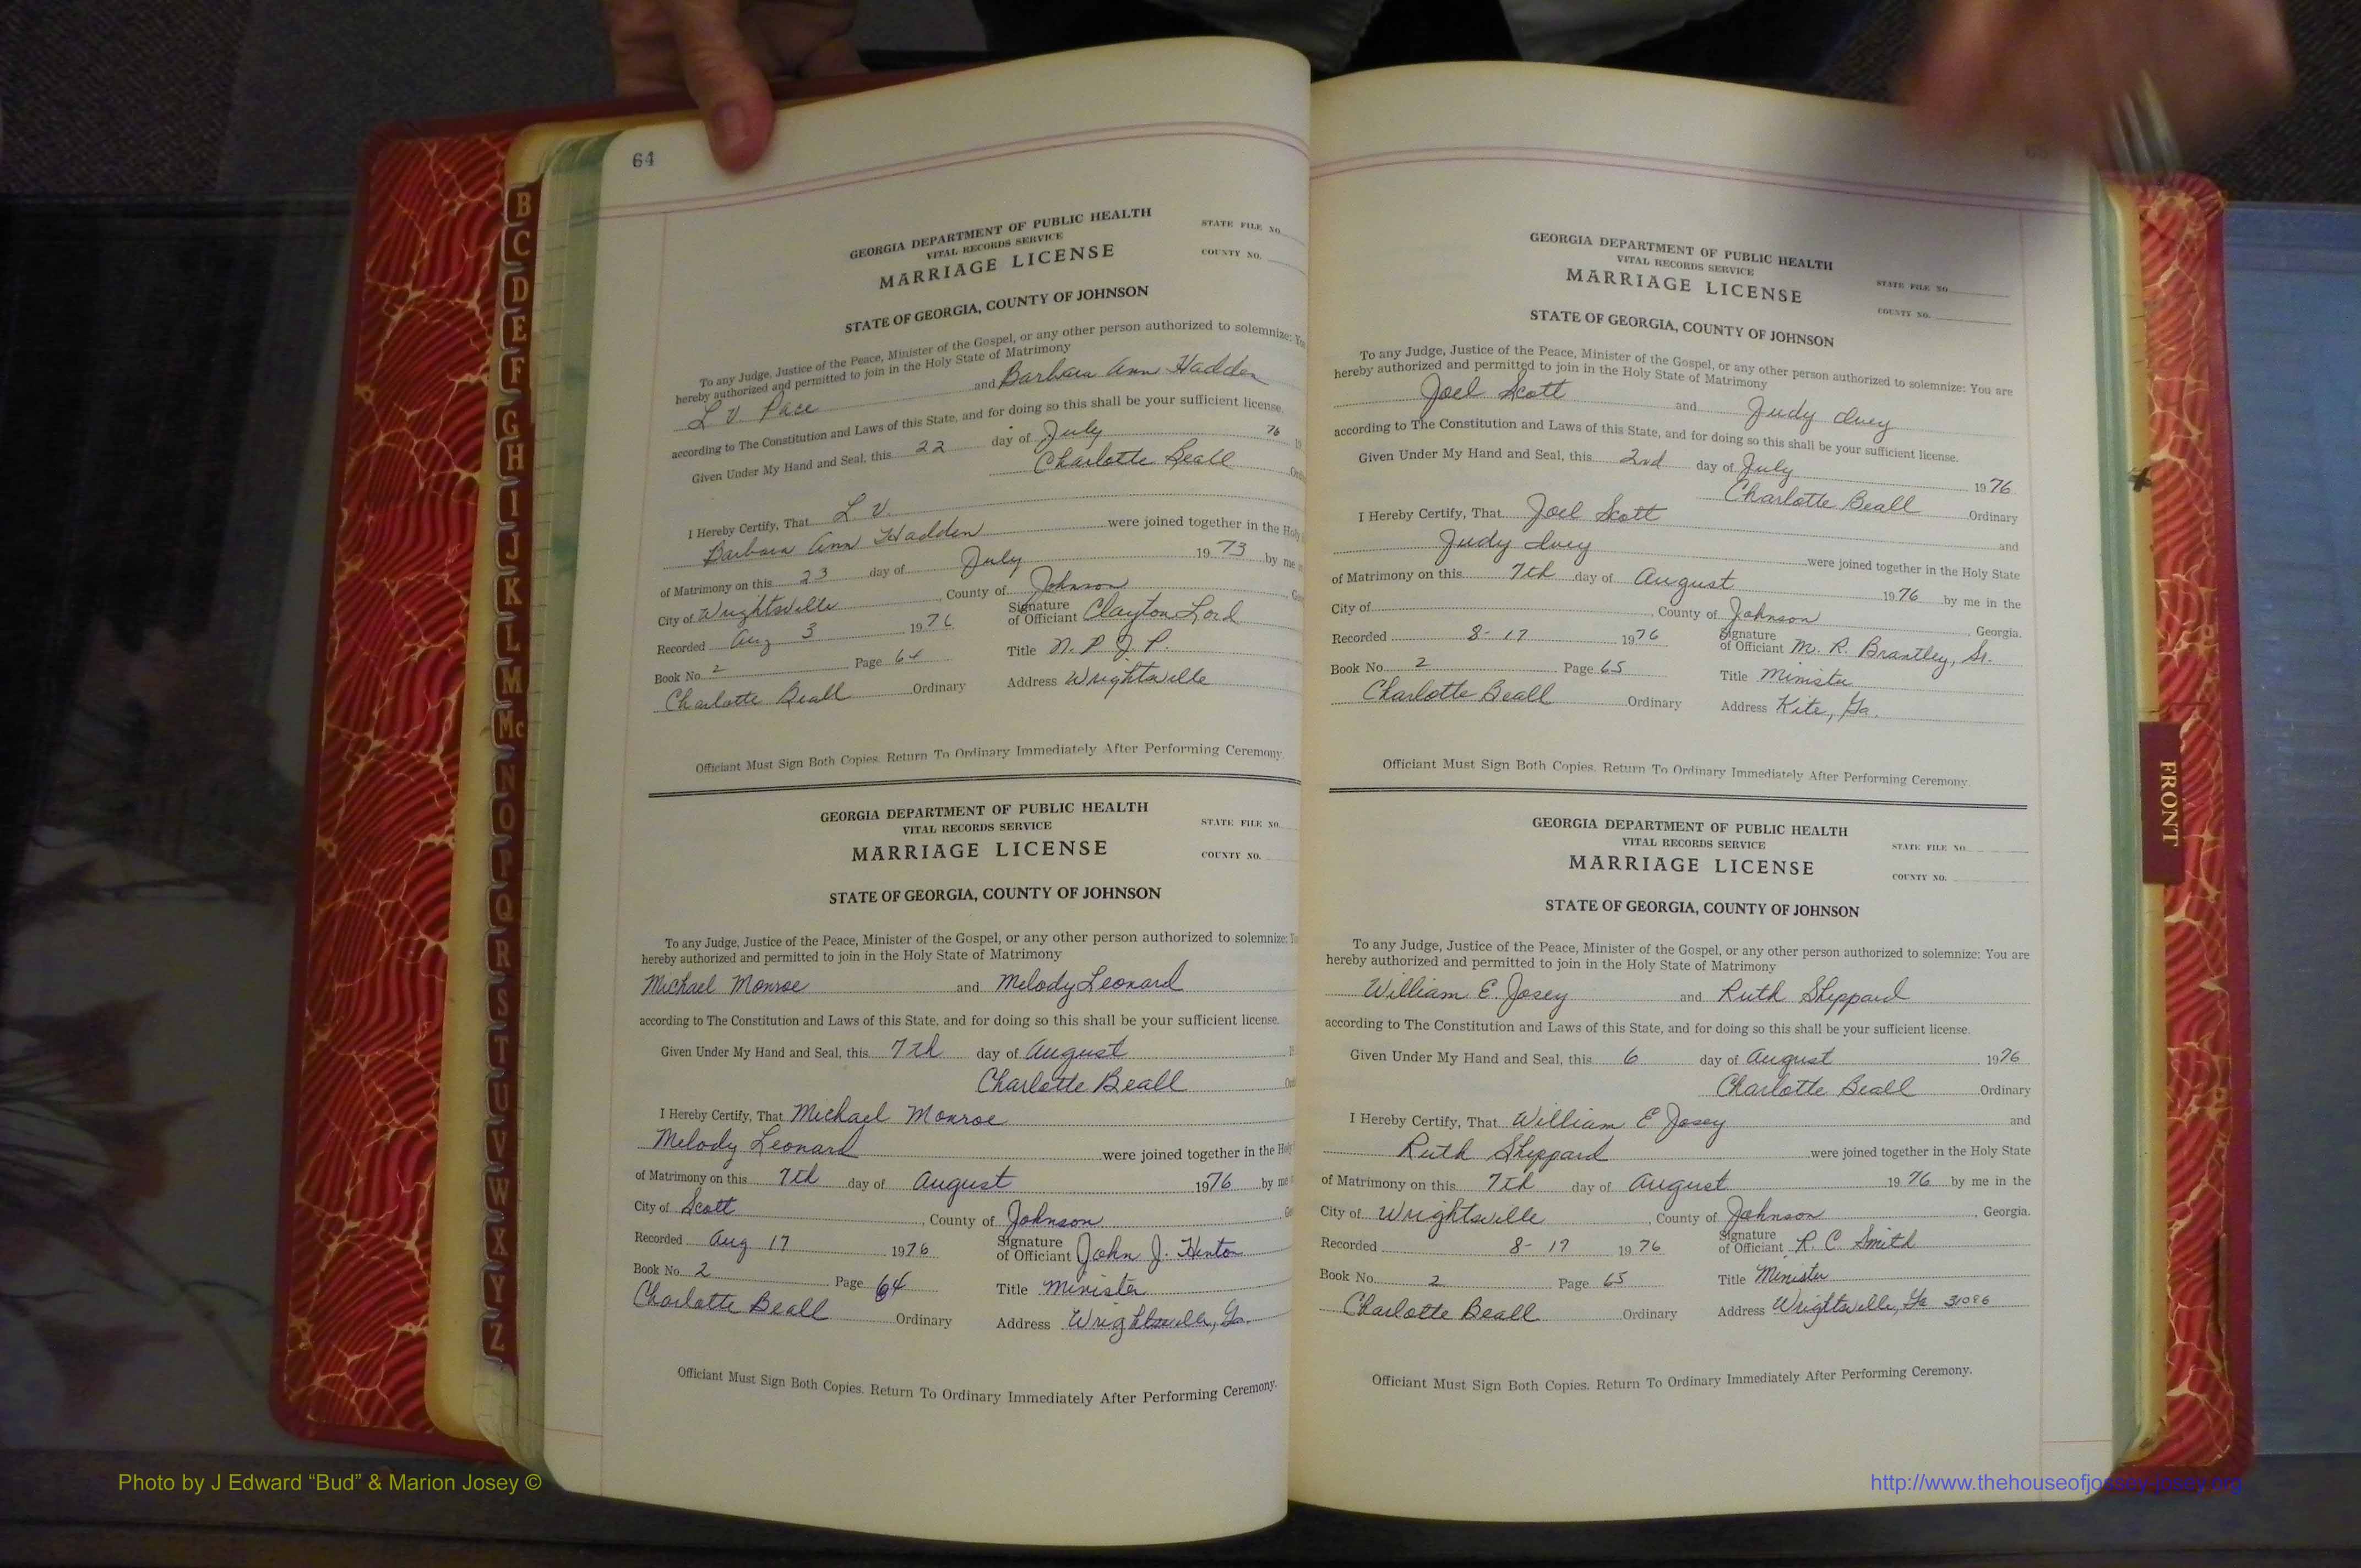 64
GEORGIA DEPARTMENT OF PUBLIC HEALTH
VITAL RECORDS SERVICE
MARRIAGE LICENSE
STATE FILE NO.
COUNTY NO.
STATE OF GEORGIA, COUNTY OF JOHNSON
To any Judge, Justice of the Peace, Minister of the Gospel, or any other person authorized to solemnize:
hereby authorized and permitted to join in the Holy State of Matrimony
L V Pace and Barbara Ann Hadden
according to The Constitution and Laws of this State, and for doing so this shall be your sufficient license.
Given Under My Hand and Seal, this 22 day of July 76
Charlotte Beall
I Hereby Certify, That L. V.
Barbara Ann Hadden were joined together in the Holy
of Matrimony on this 23 day of July 1973 by me
City of Wrightsville, County of Johnson
Recorded Aug 3 1976 Signature of Officiant Clayton Lord
Book No. 2 Page 64 Title N. P. J. P.
Charlotte Beall Ordinary Address Wrightsville
Officiant Must Sign Both Copies. Return To Ordinary Immediately After Performing Ceremony.
GEORGIA DEPARTMENT OF PUBLIC HEALTH
VITAL RECORDS SERVICE
MARRIAGE LICENSE
STATE FILE NO.
COUNTY NO.
STATE OF GEORGIA, COUNTY OF JOHNSON
To any Judge, Justice of the Peace, Minister of the Gospel, or any other person authorized to solemnize:
hereby authorized and permitted to join in the Holy State of Matrimony
Michael Monroe and Melody Leonard
according to The Constitution and Laws of this State, and for doing so this shall be your sufficient license.
Given Under My Hand and Seal, this 7th day of August
Charlotte Beall
I Hereby Certify, That Michael Monroe
Melody Leonard were joined together in the Holy
of Matrimony on this 7th day of August 1976 by me
City of Scott, County of Johnson
Recorded Aug 17 1976 Signature of Officiant John J. Hinton
Book No. 2 Page 64 Title Minister
Charlotte Beall Ordinary Address Wrightsville, Ga.
Officiant Must Sign Both Copies. Return To Ordinary Immediately After Performing Ceremony.
GEORGIA DEPARTMENT OF PUBLIC HEALTH
VITAL RECORDS SERVICE
MARRIAGE LICENSE
STATE FILE NO.
COUNTY NO.
STATE OF GEORGIA, COUNTY OF JOHNSON
To any Judge, Justice of the Peace, Minister of the Gospel, or any other person authorized to solemnize: You are
hereby authorized and permitted to join in the Holy State of Matrimony
Joel Scott and Judy Ivey
according to The Constitution and Laws of this State, and for doing so this shall be your sufficient license.
Given Under My Hand and Seal, this 2nd day of July 1976
Charlotte Beall Ordinary
I Hereby Certify, That Joel Scott and
Judy Ivey were joined together in the Holy State
of Matrimony on this 7th day of August 1976 by me in the
City of , County of Johnson, Georgia.
Recorded 8-17 1976 Signature of Officiant M. R. Brantley, Sr.
Book No. 2 Page 65 Title Minister
Charlotte Beall Ordinary Address Kite, Ga.
Officiant Must Sign Both Copies. Return To Ordinary Immediately After Performing Ceremony.
GEORGIA DEPARTMENT OF PUBLIC HEALTH
VITAL RECORDS SERVICE
MARRIAGE LICENSE
STATE FILE NO.
COUNTY NO.
STATE OF GEORGIA, COUNTY OF JOHNSON
To any Judge, Justice of the Peace, Minister of the Gospel, or any other person authorized to solemnize: You are
hereby authorized and permitted to join in the Holy State of Matrimony
William E. Josey and Ruth Sheppard
according to The Constitution and Laws of this State, and for doing so this shall be your sufficient license.
Given Under My Hand and Seal, this 6 day of August 1976
Charlotte Beall Ordinary
I Hereby Certify, That William E Josey and
Ruth Sheppard were joined together in the Holy State
of Matrimony on this 7th day of August 1976 by me in the
City of Wrightsville, County of Johnson, Georgia.
Recorded 8-17 1976 Signature of Officiant R. C. Smith
Book No. 2 Page 65 Title Minister
Charlotte Beall Ordinary Address Wrightsville, Ga 31096
Officiant Must Sign Both Copies. Return To Ordinary Immediately After Performing Ceremony.
B
C
D
E
F
G
H
I
J
K
L
M
Mc
N
O
P
Q
R
S
T
U
V
W
X
Y
Z
FRONT
Photo by J Edward “Bud” & Marion Josey ©
http://www.thehouseofjossey-josey.org